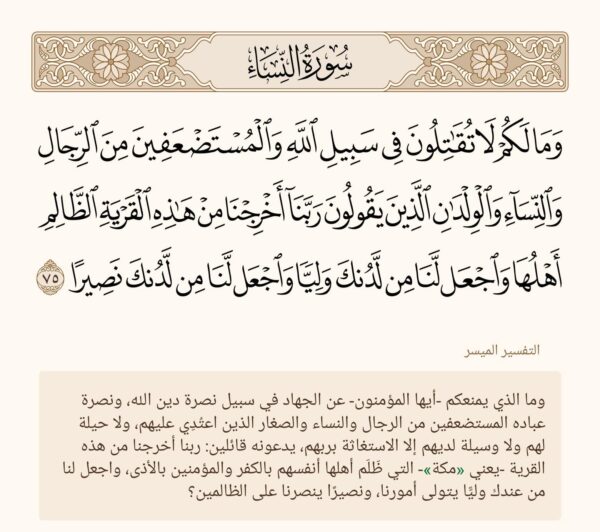 سُورَةُ النِّسَاءِ
وَمَا لَكُمْ لَا تُقَٰتِلُونَ فِى سَبِيلِ ٱللَّهِ وَٱلْمُسْتَضْعَفِينَ مِنَ ٱلرِّجَالِ
وَٱلنِّسَآءِ وَٱلْوِلْدَٰنِ ٱلَّذِينَ يَقُولُونَ رَبَّنَآ أَخْرِجْنَا مِنْ هَٰذِهِ ٱلْقَرْيَةِ ٱلظَّالِمِ
أَهْلُهَا وَٱجْعَل لَّنَا مِن لَّدُنكَ وَلِيًّا وَٱجْعَل لَّنَا مِن لَّدُنكَ نَصِيرًا ٧٥
التفسير الميسر
وما الذي يمنعكم -أيها المؤمنون- عن الجهاد في سبيل نصرة دين الله، ونصرة
عباده المستضعفين من الرجال والنساء والصغار الذين اعتُدِي عليهم، ولا حيلة
لهم ولا وسيلة لديهم إلا الاستغاثة بربهم، يدعونه قائلين: ربنا أخرجنا من هذه
القرية -يعني «مكة»- التي ظَلَم أهلها أنفسهم بالكفر والمؤمنين بالأذى، واجعل لنا
من عندك وليًا يتولى أمورنا، ونصيرًا ينصرنا على الظالمين؟